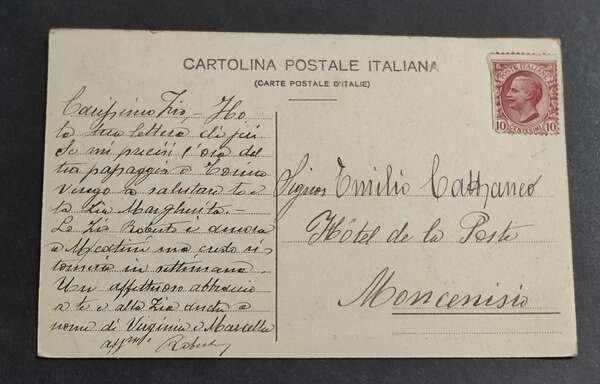 CARTOLINA POSTALE ITALIANA
(CARTE POSTALE D'ITALIE)
POSTE ITALIANE
10 CENTESIMI 10
Carissimo Zio, - Ho
la tua lettera di ieri
Se mi precisi l'ora del
tuo passaggio a Torino
vengo a salutare te e
la Zia Margherita. -
Lo Zio Roberto è ancora
a ma credo ri
tornerà in settimana
Un affettuoso abbraccio
a te e alla Zia anche a
nome di Virginia e Marcella
aff.mo Roberto
Signor Emilio Cattaneo
Hôtel de la Poste
Moncenisio